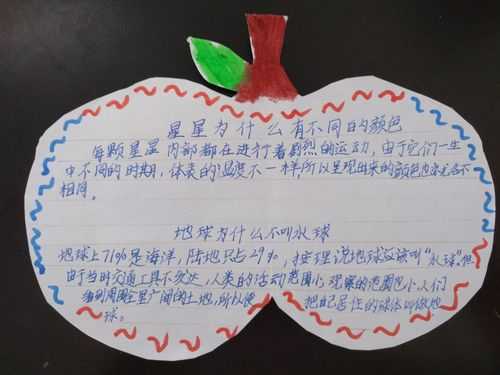 星星为什么有不同的颜色
每颗星星内部都在进行着剧烈的运动，由于它们一生
中不同的时期，体表的温度不一样所以呈现出来的颜色也各不
相同。
地球为什么不叫水球
地球上71%是海洋，陆地只占29%，按理说地球应该叫“水球”。但
由于当时交通工具不发达，人类的活动范围小，观察的范围也小，人们
看到周围全是广阔的土地，所以便 把自己居住的球体叫做地
球。